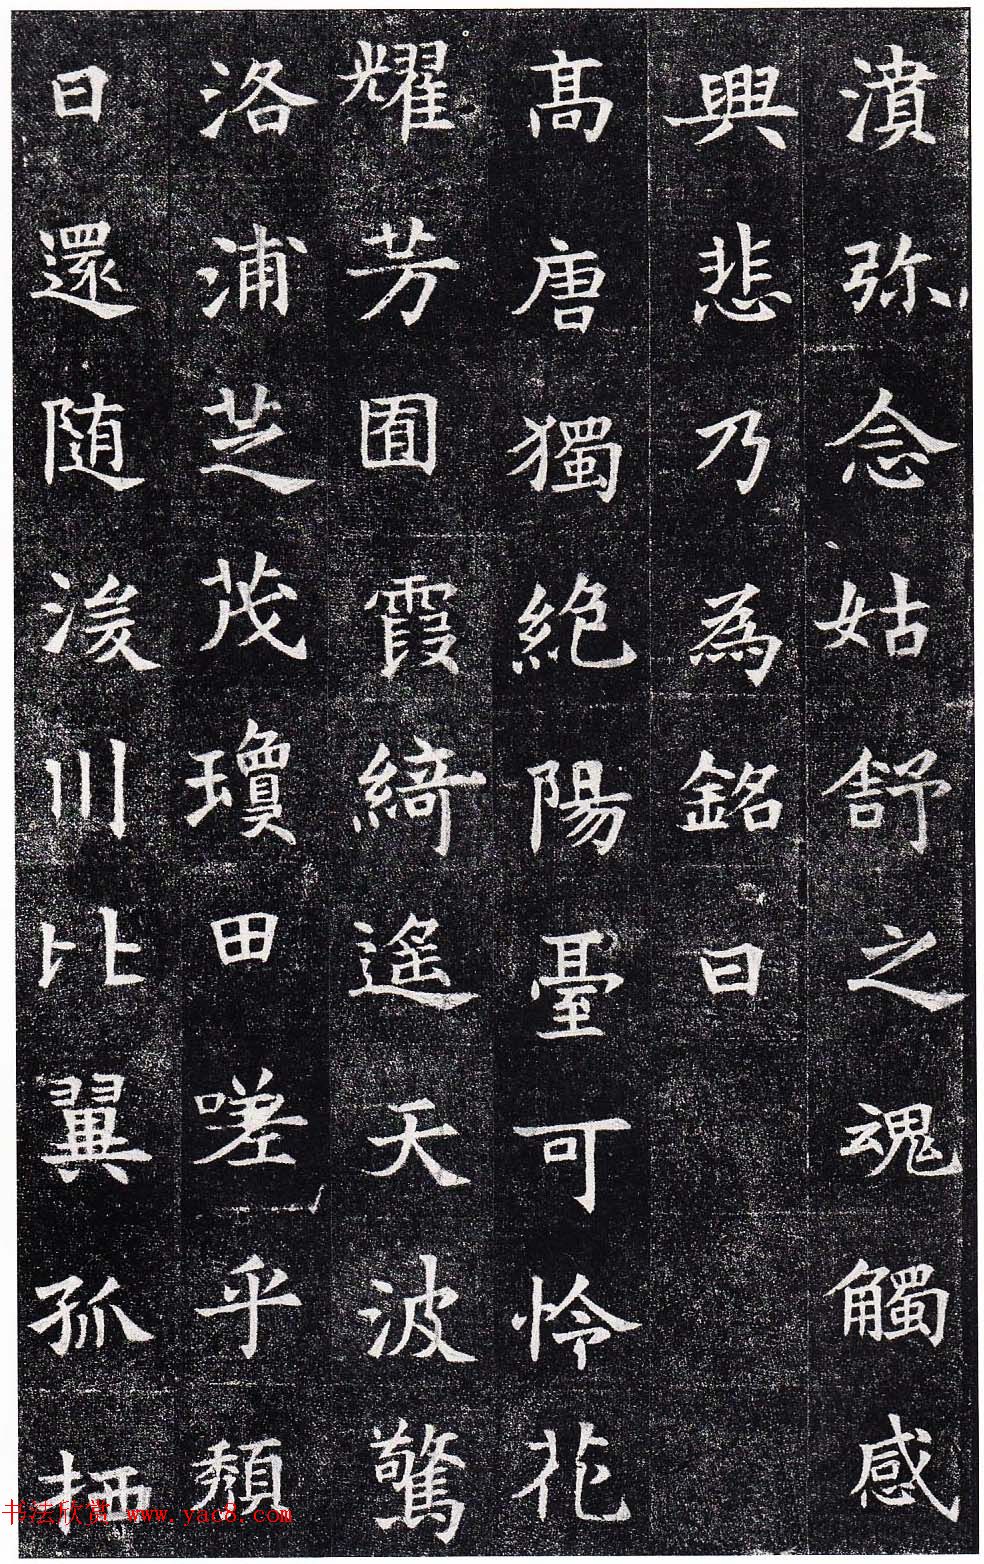 濆弥念姑舒之魂觸感
興悲乃為銘曰
髙唐獨絶陽臺可怜花
耀芳囿霞綺遥天波驚
洛浦芝茂瓊田嗟乎頽
日還随浚川比翼孤栖
书法欣赏 www.yac8.com